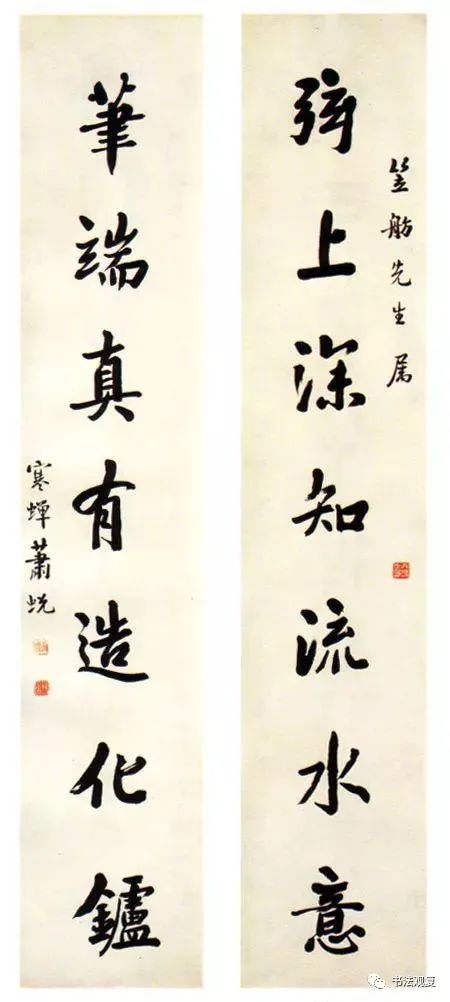 笠舫先生属
弦上深知流水意
筆端真有造化鑪
寒蟬蕭蛻
书法观复